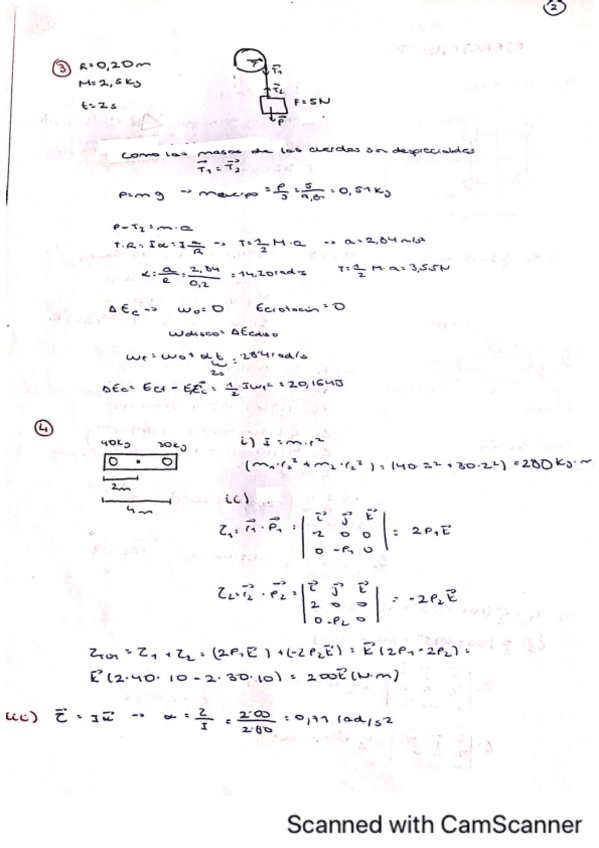 2
3 R=0,20m
M=2,5Kg
t=2s
T1
T2
F=5N
P
Como las masas de las cuerdas son despreciables
T1 = T2
P=mg → mcuerpo = P/g = 5/9,81 = 0,51kg
P-T2=m·a
T·R=Iα=I a/R → T=1/2 M·a → a=2,84m/s²
α=a/R=2,84/0,2=14,20rad/s T=1/2 M·a=3,55N
ΔEc → ω0=0 Ecrotación=0
Wdisco=ΔEcdisco
ωf=ω0+αt=28'4rad/s
2s
ΔEc=Ecf-Eci=1/2·Iωf²=20,164J
4
40kg 30kg
2m
4m
i) I=m·r²
(m1·r1²+m2·r2²)=(40·2²+30·2²)=280kg·m
ii)
τ1=r1·P1=| i j k | -2 0 0 | 0 -P1 0 |=2P1k
τ2=r2·P2=| i j k | 2 0 0 | 0 -P2 0 |=-2P2k
τTOT=τ1+τ2=(2P1k)+(-2P2k)=k(2P1-2P2)=
k(2·40·10-2·30·10)=200k(N·m)
iii) τ=Iα → α=τ/I=200/280=0,71rad/s2
Scanned with CamScanner